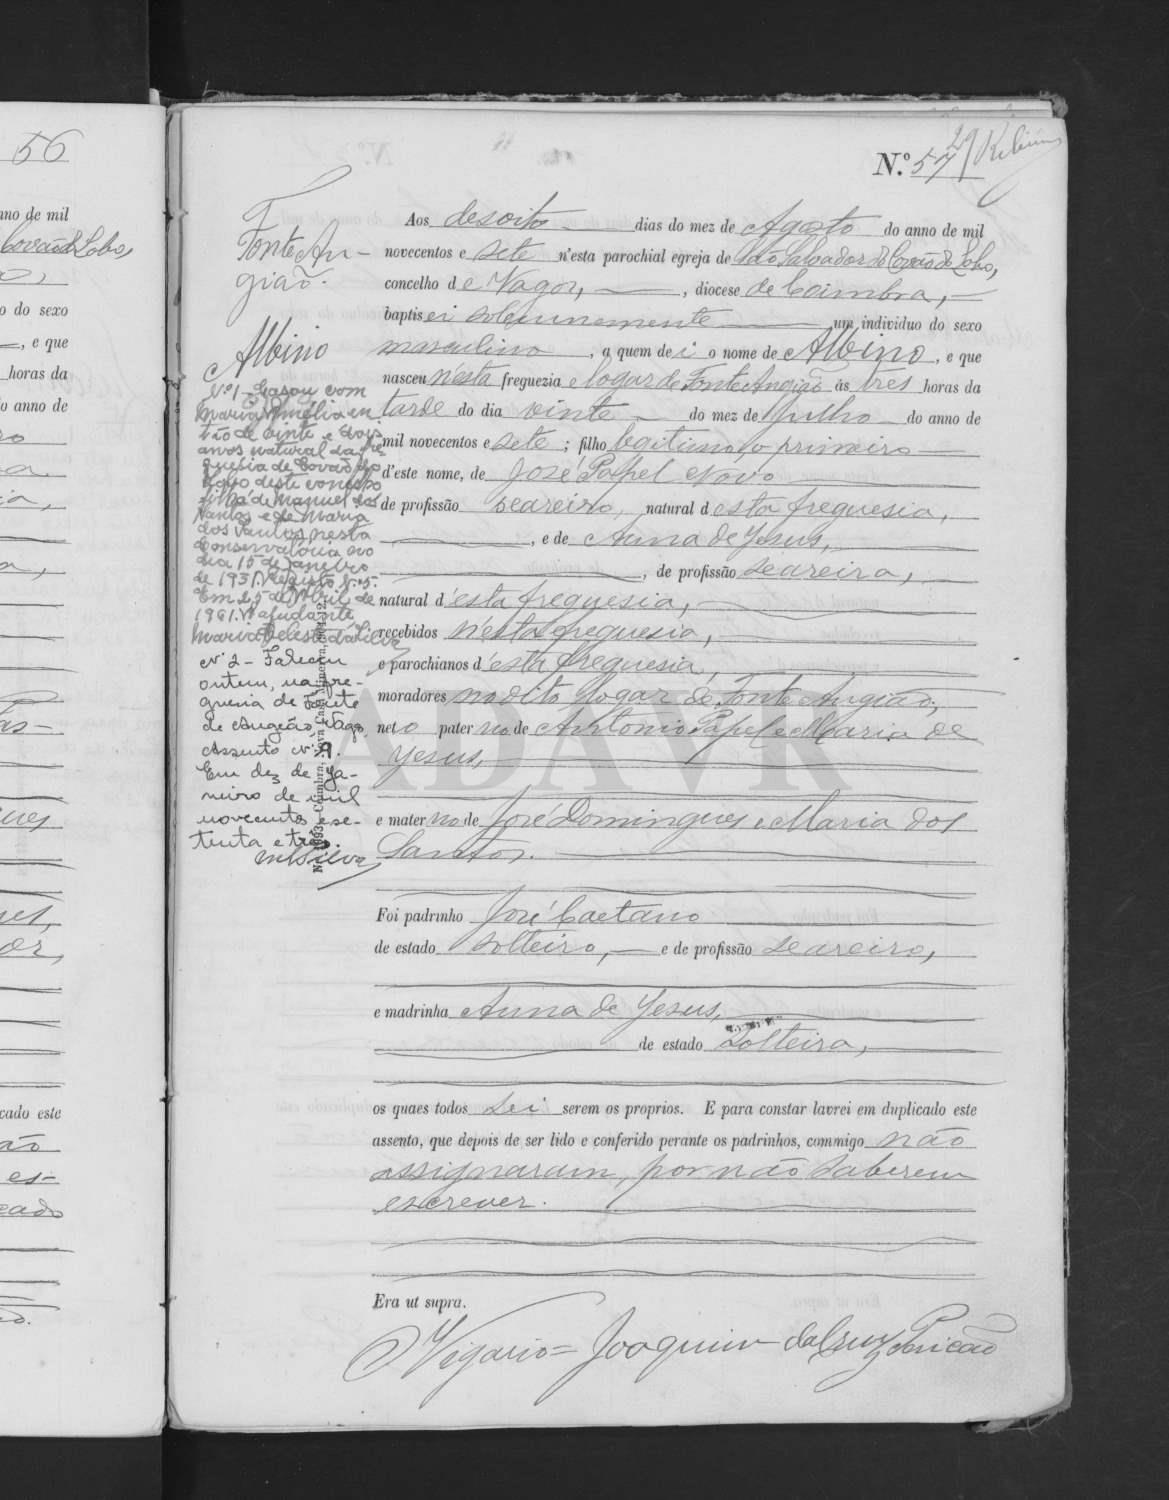 56
nno de mil
Covão do Lobo,
o do sexo
, e que
horas da
o anno de
cado este
ão
es-
N.º 57
29
Fonte An-
gião.
Albino
Nº 1 - Casou com
Maria Amélia en
tão de vinte e dois
anos natural da fre
guesia de Covão do
Lobo deste concelho
filha de Manuel dos
Santos e de Maria
dos Santos, nesta
Conservatória no
dia 15 de Janeiro
de 1931. Registo Nº 5.
Em 25 de Abril de
1961. A ajudante,
Maria Celeste da Silva
Nº 2 - Faleceu
ontem, na fre-
guesia de Fonte
de Angeão, Vagos
Assento Nº 9.
Em dez de Ja-
neiro de mil
novecentos e se-
tenta e três.
MSilva
N.º 1993 - Coimbra, Nova Casa Minerva,
Aos desoito dias do mez de Agosto do anno de mil
novecentos e sete n'esta parochial egreja de São Salvador do Covão do Lobo,
concelho de Vagos, , diocese de Coimbra,
baptisei solemnemente um individuo do sexo
masculino , a quem dei o nome de Albino , e que
nasceu n'esta freguezia e logar de Fonte Angião ás tres horas da
tarde do dia vinte do mez de Julho do anno de
mil novecentos e sete ; filho legitimo, o primeiro
d'este nome, de José Papel Novo
de profissão seareiro, natural d'esta freguesia,
, e de Anna de Jesus,
, de profissão seareira,
natural d'esta freguesia,
recebidos n'esta freguesia,
e parochianos d'esta freguesia,
moradores no dito logar de Fonte Angião;
neto paterno de Antonio Papel e Maria de
Jesus,
e materno de José Domingues e Maria dos
Santos.
Foi padrinho José Caetano
de estado solteiro, e de profissão seareiro,
e madrinha Anna de Jesus,
de estado Solteira,
os quaes todos sei serem os proprios. E para constar lavrei em duplicado este
assento, que depois de ser lido e conferido perante os padrinhos, commigo não
assignaram, por não saberem
escrever.
Era ut supra.
O Vigario = Joaquim da Cruz Pericão
ADAVR